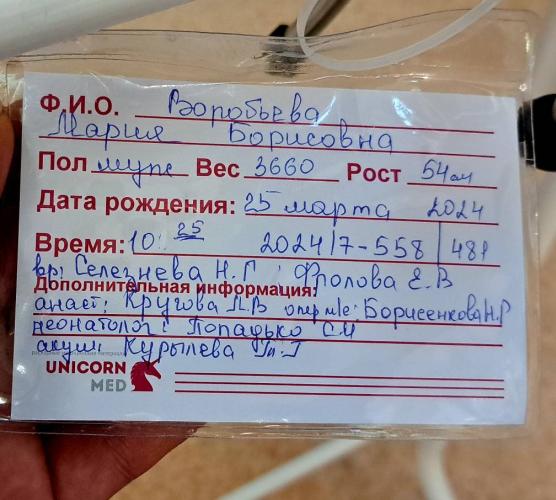 Ф.И.О. Воробьева
Мария Борисовна
Пол муж Вес 3660 Рост 54см
Дата рождения: 25 марта 2024
Время: 10 25 2024/7-558 481
вр: Селезнева Н.Г Фролова Е.В
Дополнительная информация:
анест: Кругова Л.В опер м/с: Борисенкова Н.Р
неонатолог: Попадько С.И
акуш: Курылева Т.Г
UNICORN
MED